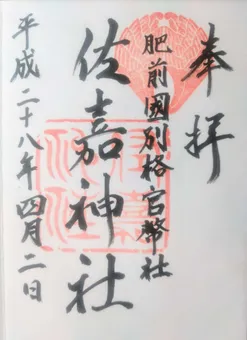 奉拝
肥前國別格官幣社
佐嘉神社
平成二十八年四月二日